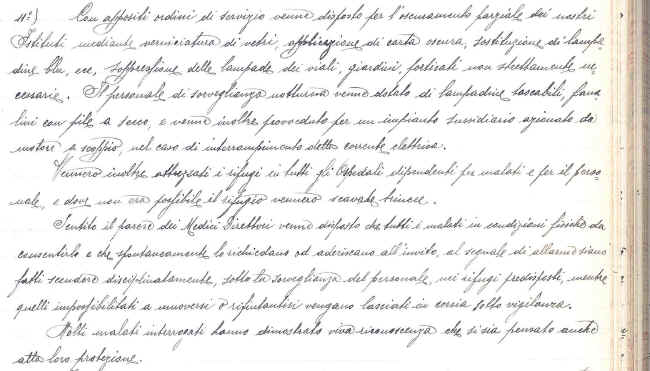 11º) Con appositi ordini di servizio venne disposto per l'oscuramento parziale dei nostri
Istituti mediante verniciatura di vetri, applicazione di carta oscura, sostituzione di lampa-
dine blu, ecc, soppressione delle lampade dei viali, giardini, porticati non strettamente ne-
cessarie. Il personale di sorveglianza notturna venne dotato di lampadine tascabili, fana-
lini con pile a secco, e venne inoltre provveduto per un impianto sussidiario azionato da
motore a scoppio, nel caso di interrompimento della corrente elettrica.
Vennero inoltre attrezzati i rifugi in tutti gli Ospedali dipendenti per malati e per il perso-
nale, e dove non era possibile il rifugio vennero scavate trincee.
Sentito il parere dei Medici Direttori venne disposto che tutti i malati in condizioni fisiche da
consentirlo e che spontaneamente lo richiedano od aderiscano all'invito, al segnale di allarme siano
fatti scendere disciplinatamente, sotto la sorveglianza del personale, nei rifugi predisposti, mentre
quelli impossibilitati a muoversi o rifiutantisi vengano lasciati in corsia sotto vigilanza.
Molti malati interrogati hanno dimostrato viva riconoscenza che si sia pensato anche
alla loro protezione.